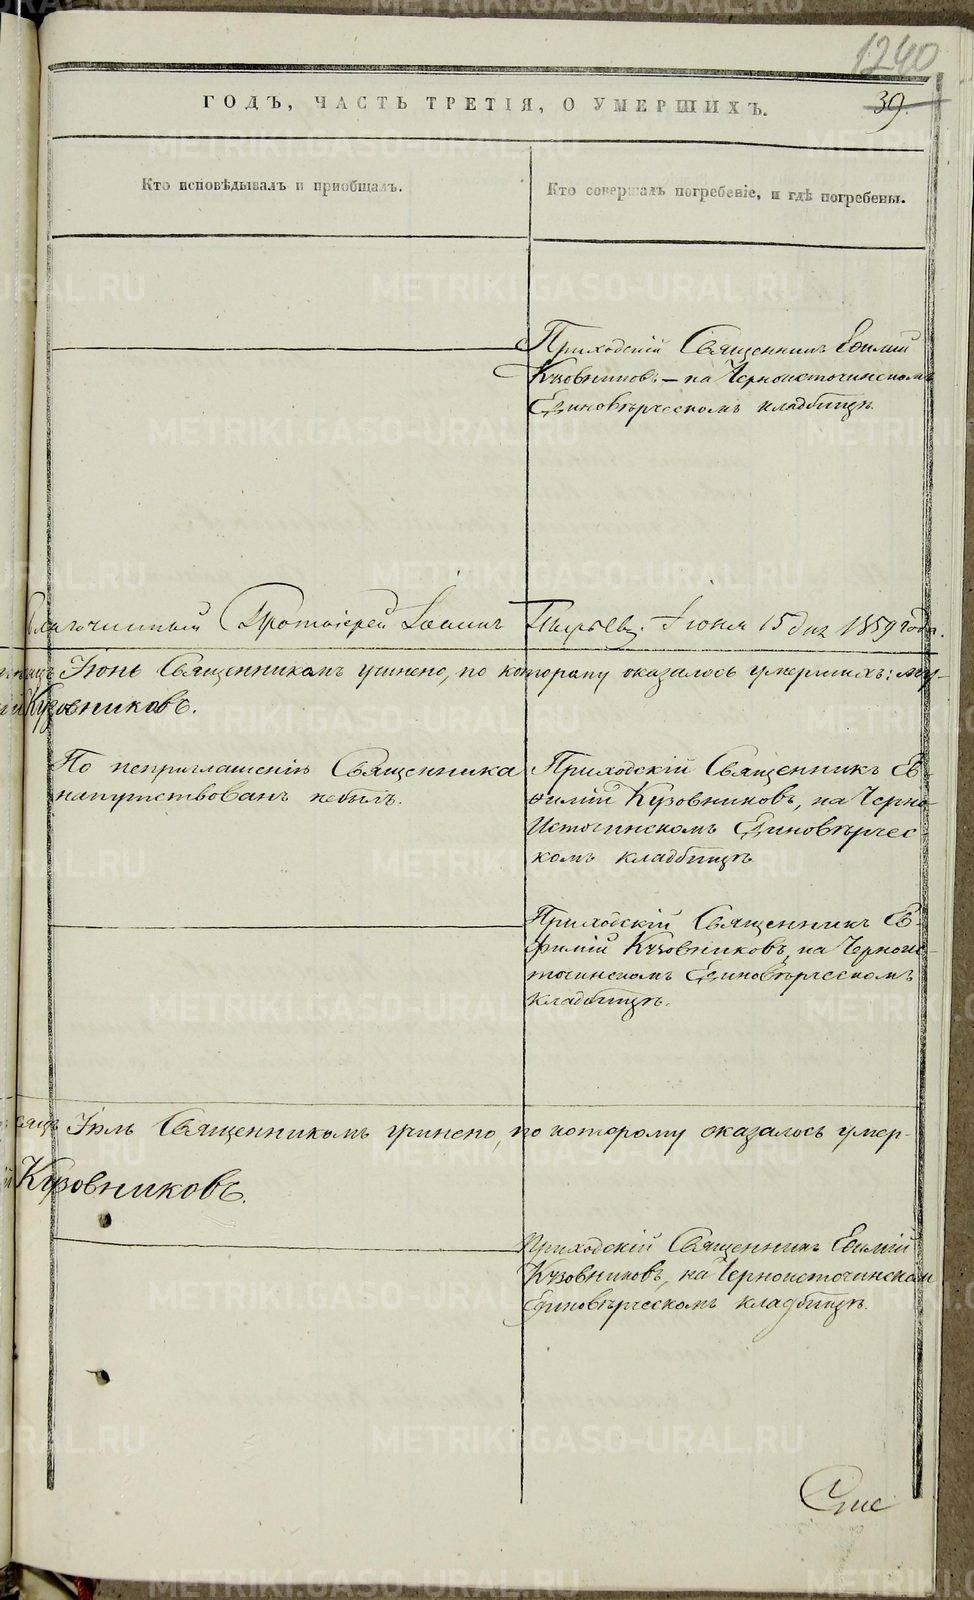 1240
ГОДЪ, ЧАСТЬ ТРЕТІЯ, О УМЕРШИХЪ.
39.
Кто исповѣдывалъ и пріобщалъ.
Кто совершалъ погребеніе, и гдѣ погребены.
Приходскій Священникъ Еѳимій
Кузовниковъ – на Черноисточинскомъ
Единовѣрческомъ кладбищѣ.
Благочинный Протоіерей Іоаннъ Іюня 15 дня 1859 года.
Іюнь Священникомъ учинено, по которому оказалось умершихъ: му-
Кузовниковъ.
По неприглашенію Священника
напутствованъ небылъ.
Приходскій Священникъ Ев-
ѳимій Кузовниковъ, на Черно-
Источинскомъ Единовѣрчес-
комъ кладбищѣ
Приходскій Священникъ Ев-
фимій Кузовниковъ, на Черноис-
точинскомъ Единовѣрческомъ
кладбищѣ.
Іюль Священникомъ учинено, по которому оказалось умер-
Кузовниковъ.
Приходскій Священникъ Еѳимій
Кузовниковъ, на Черноисточинском
Единовѣрческомъ кладбищѣ.
METRIKI.GASO-URAL.RU